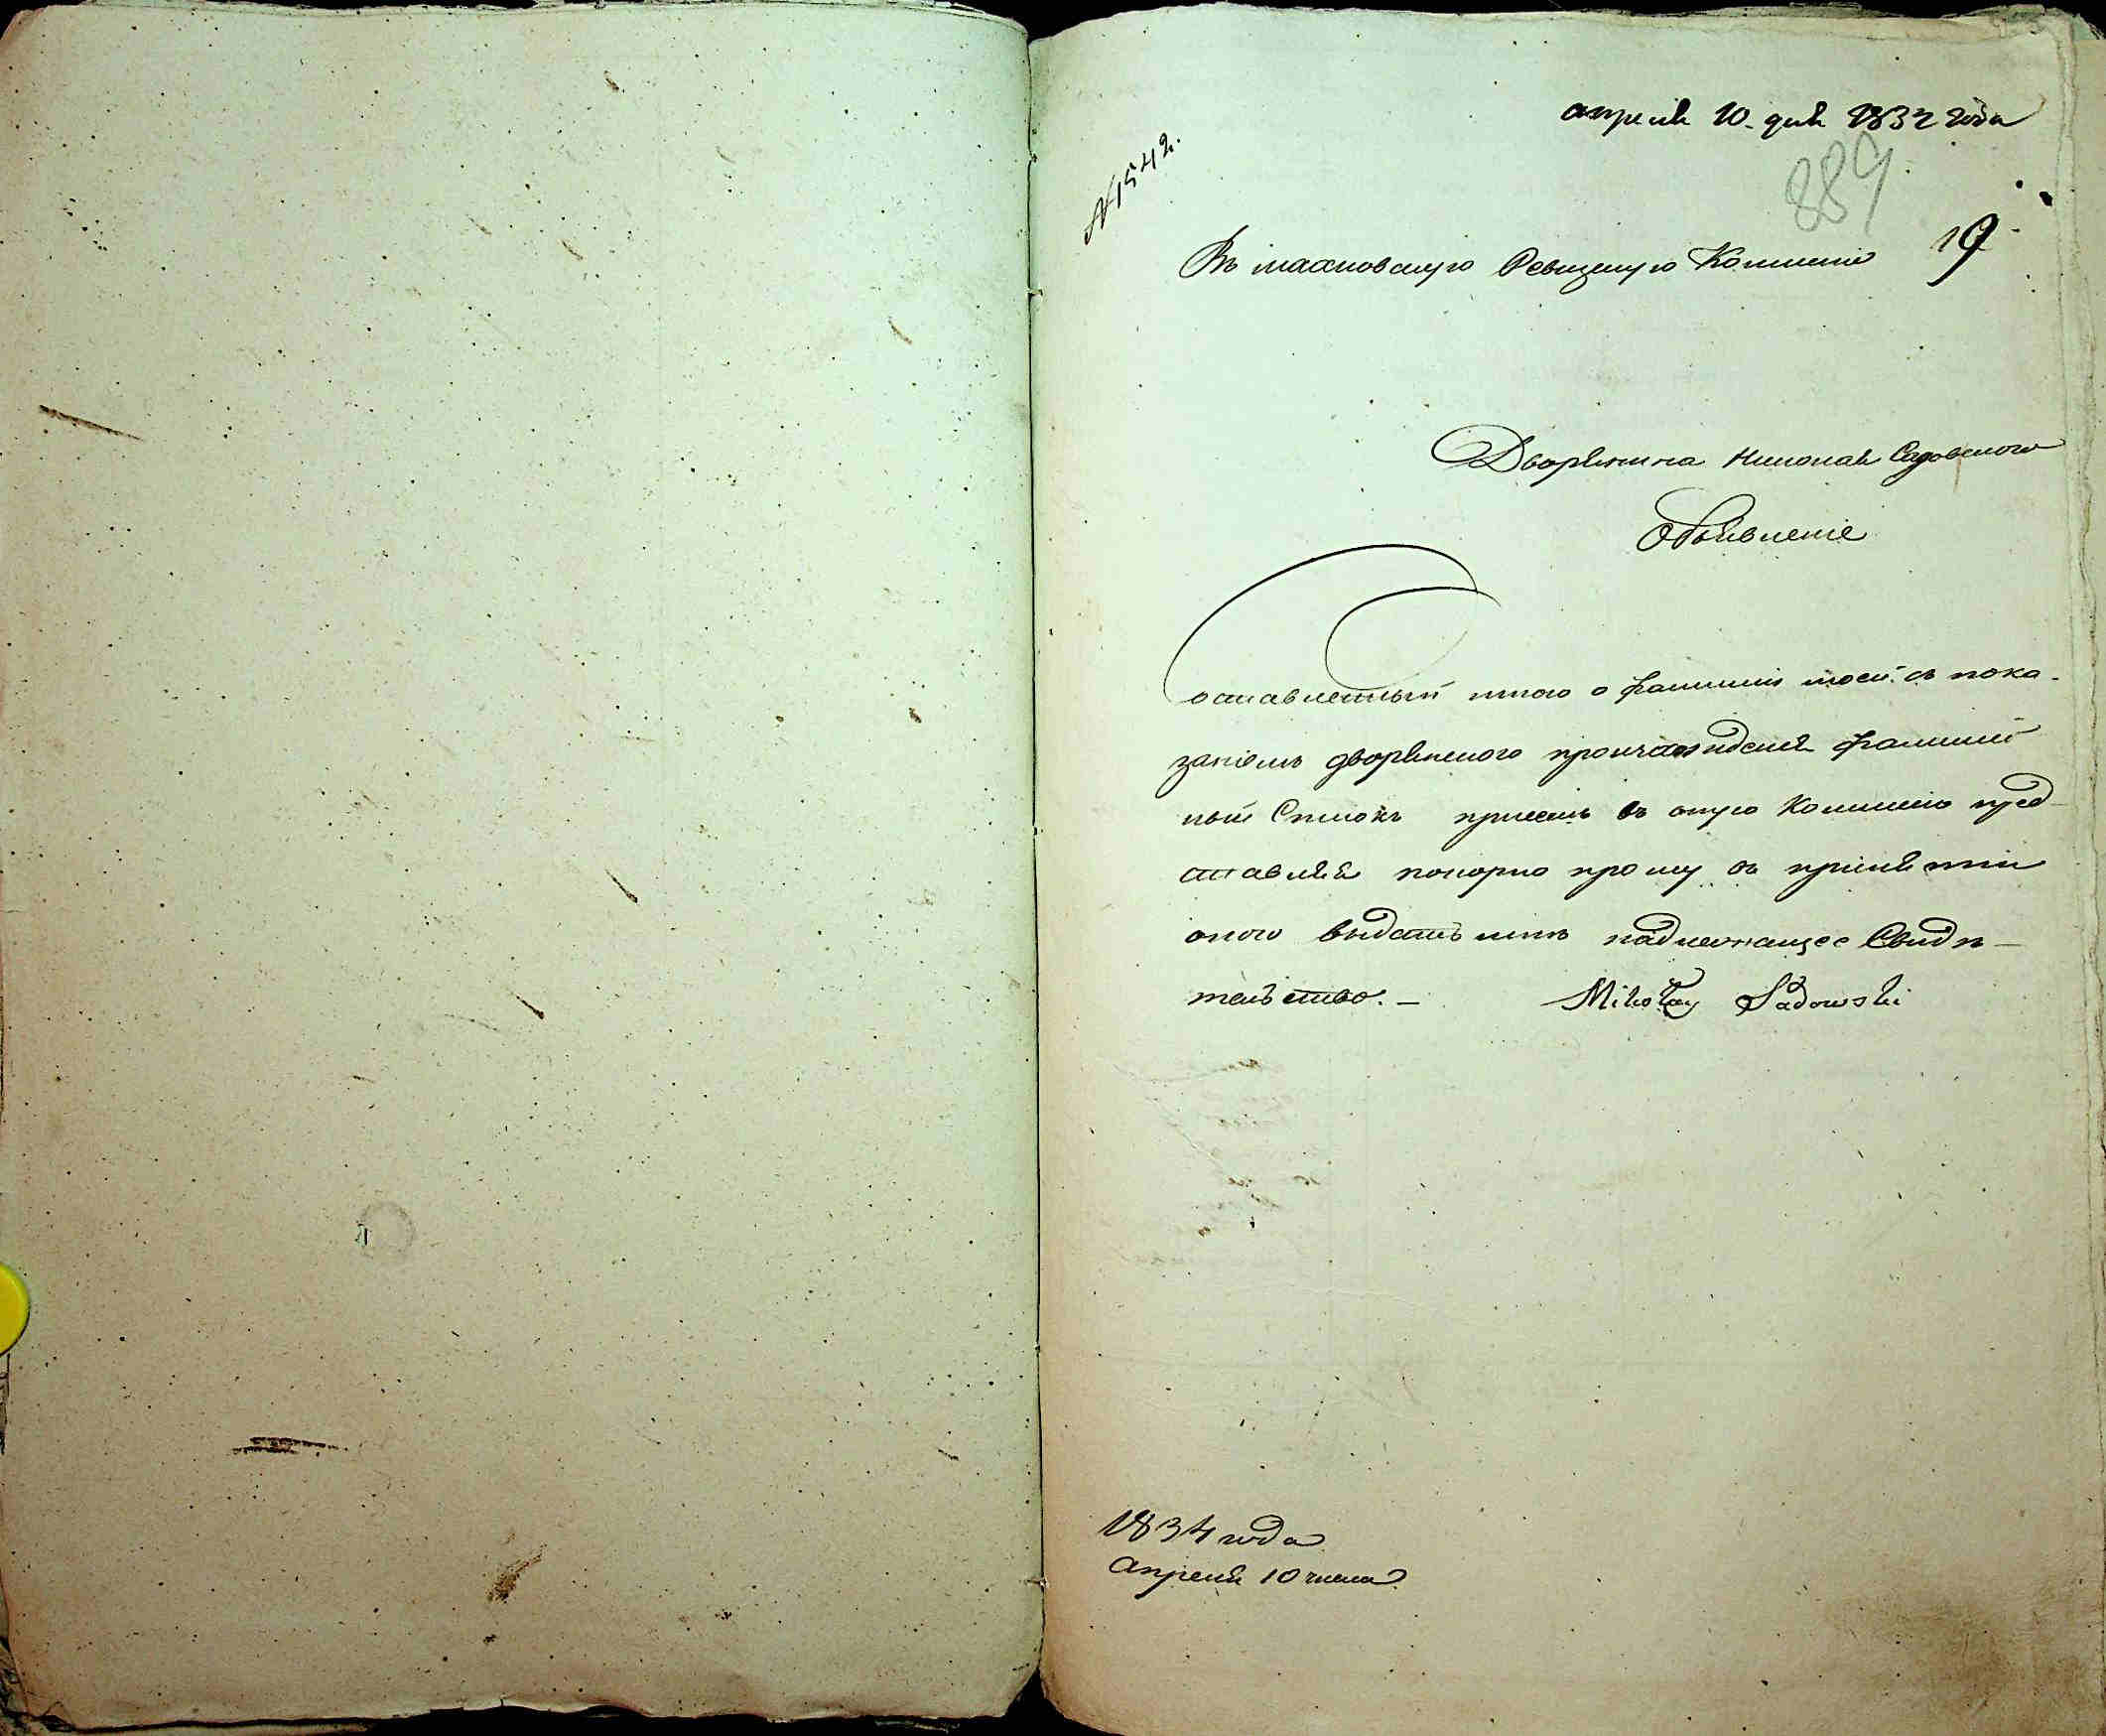 апреля 10. дня 1834 года
№ 1542.
889
19
Въ махновскую Ревизскую Комисію
Дворянина Николая Садовского
Объявленіе
Составленный мною о фамиліи моей съ пока-
заніемъ дворянского происхожденія фамилій
ный Списокъ присемъ въ оную Комисію пред-
ставляя покорно прошу въ принятіи
оного выдать мнѣ надлежащее Свидѣ-
тельство. — Mikołay Sadowski
1834 года
Апреля 10 числа